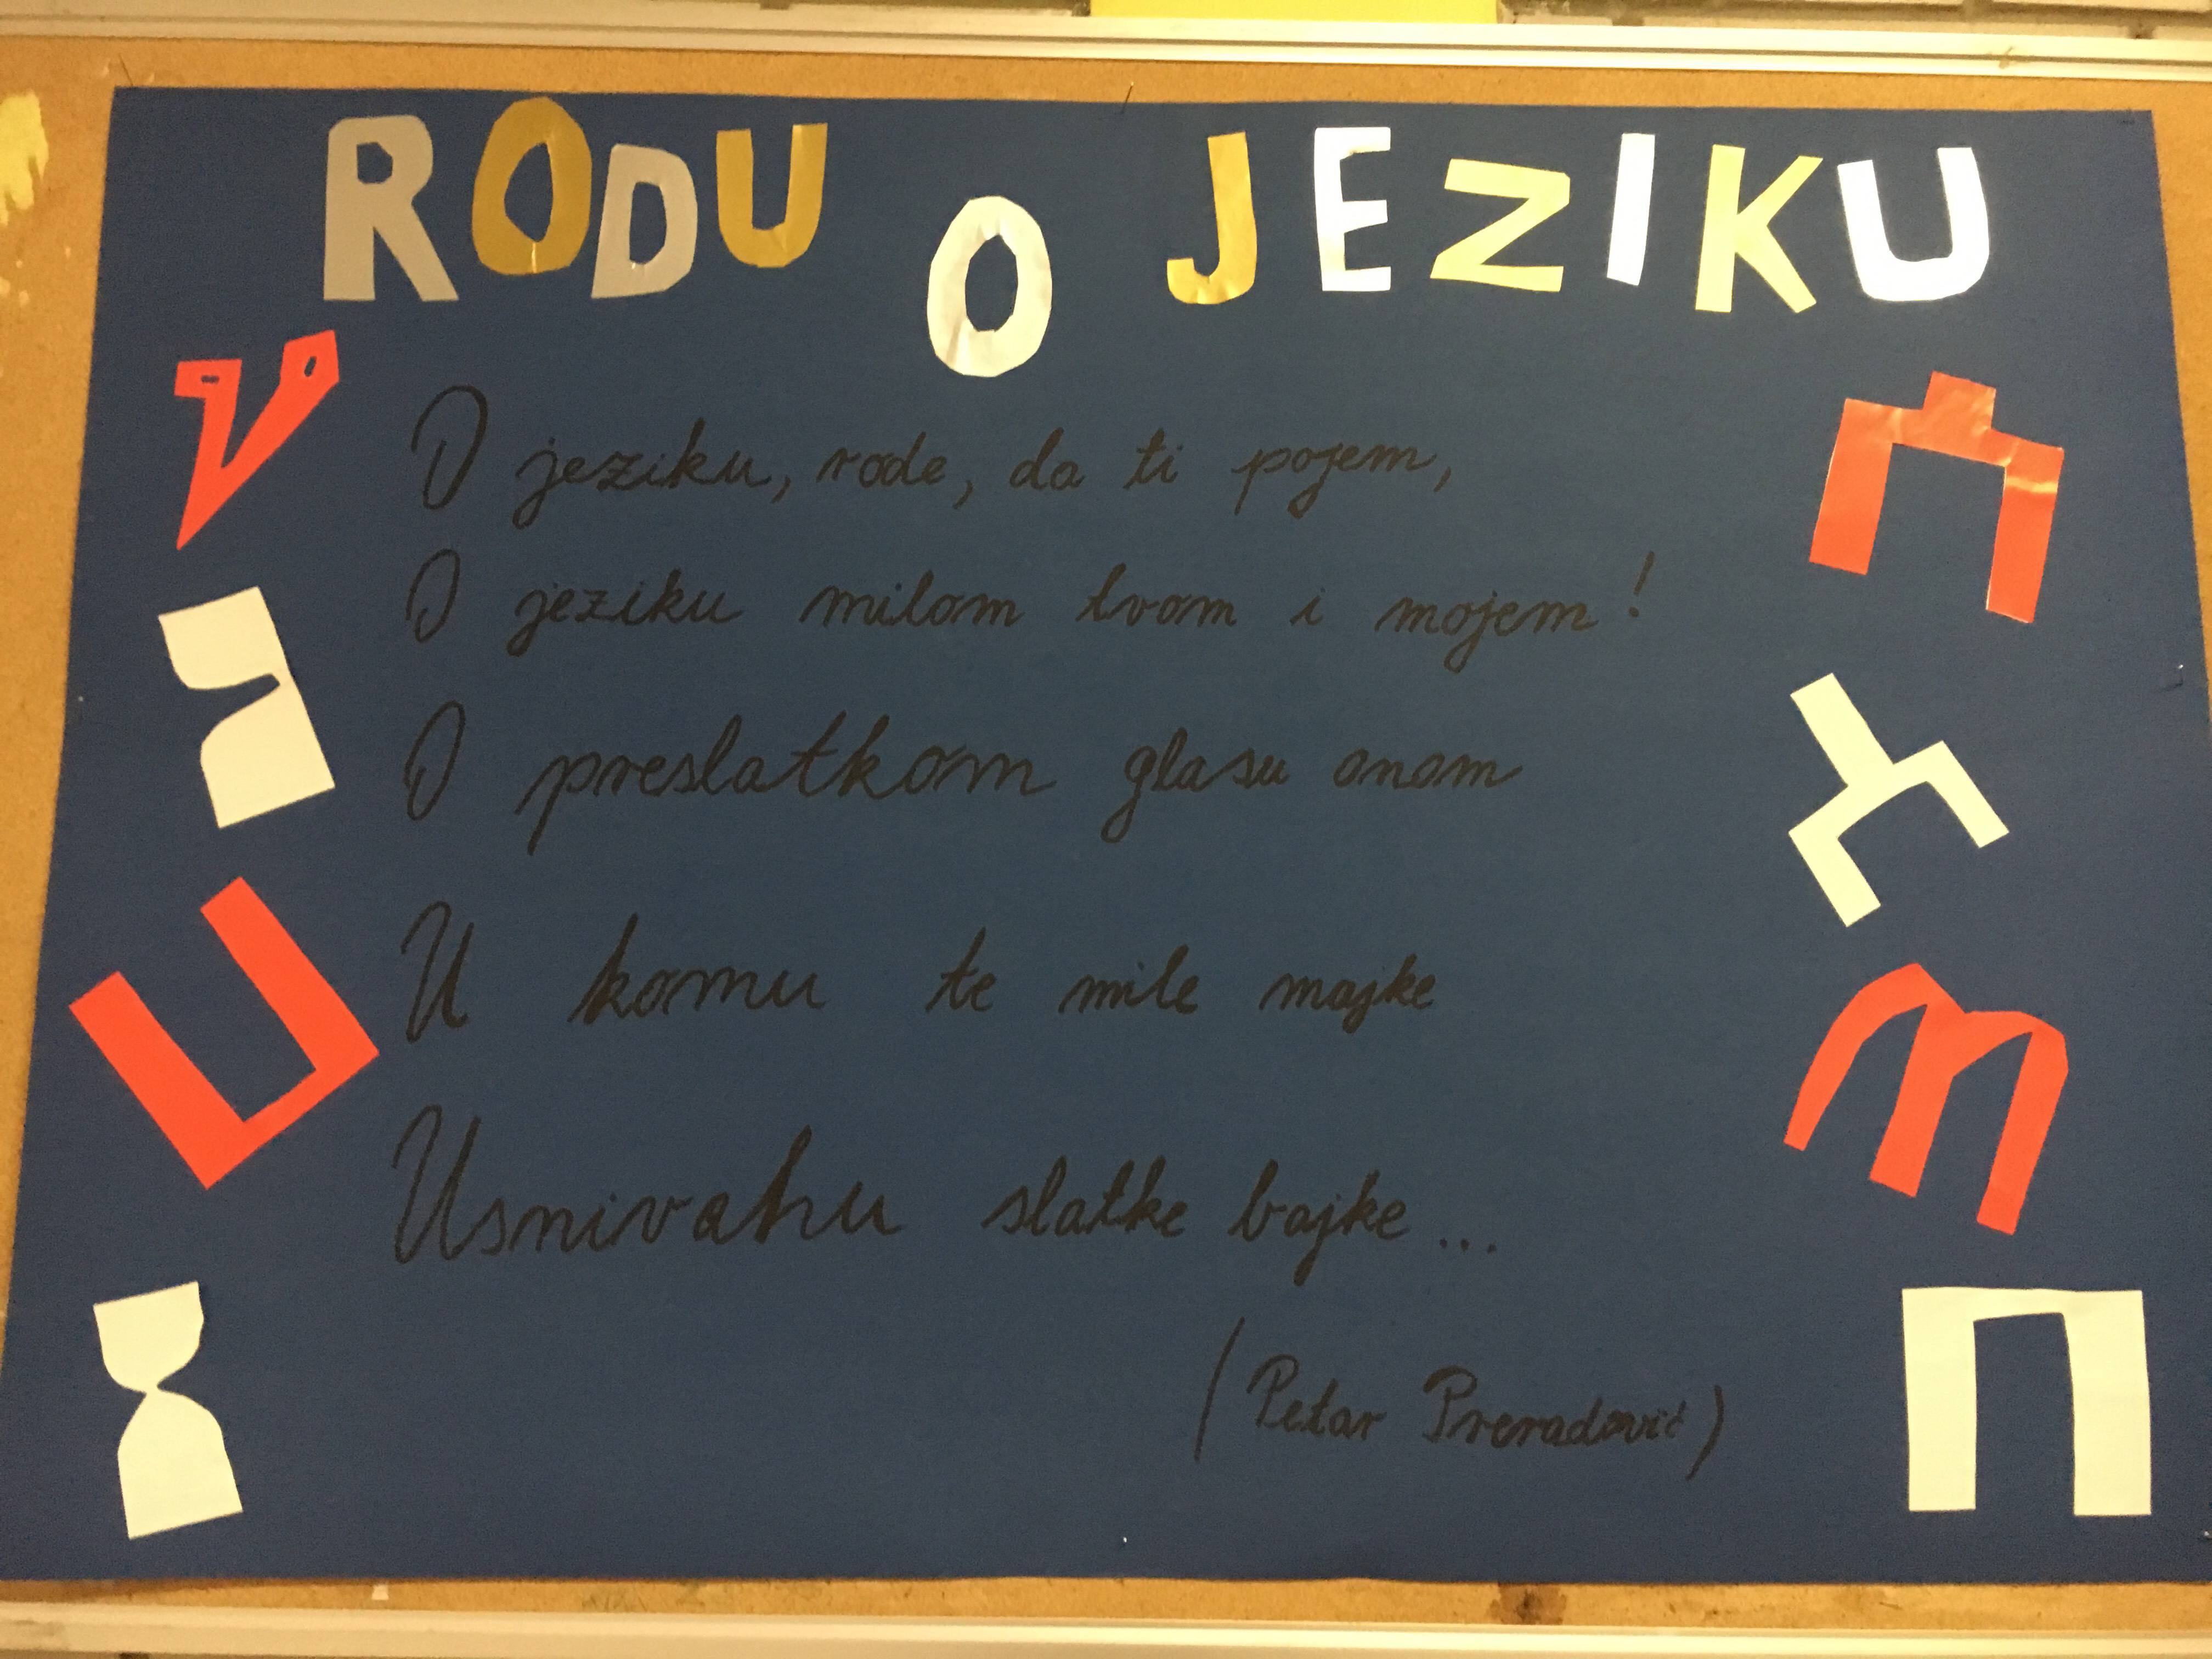 RODU O JEZIKU
O jeziku, rode, da ti pojem,
O jeziku milom tvom i mojem!
O preslatkom glasu onom
U komu te mile majke
Usnivahu slatke bajke...
(Petar Preradović)